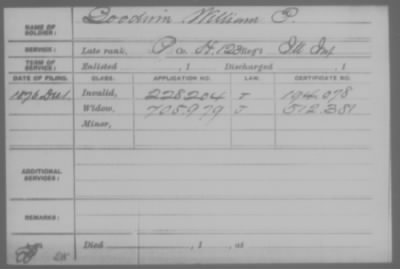 NAME OF SOLDIER: Goodwin William P.
SERVICE: Late rank, P Co. H, 123 Reg't Ill Inf
TERM OF SERVICE: Enlisted , 1 Discharged , 1
DATE OF FILING. CLASS. APPLICATION NO. LAW. CERTIFICATE NO.
1876 Dec 1 Invalid, 228204 J 194.078
Widow, 705.979 J 512.381
Minor,
ADDITIONAL SERVICES:
REMARKS:
Died , 1 , at